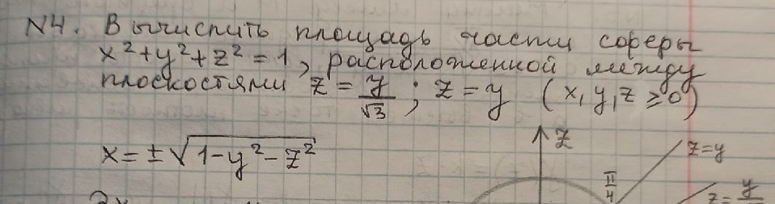 N4. Вычислить площадь части сферы
x² + y² + z² = 1, расположенной между
плоскостями z = y/√3 ; z = y (x, y, z ≥ 0)
x = ±√(1 - y² - z²)
z
z = y
π/4
z = y